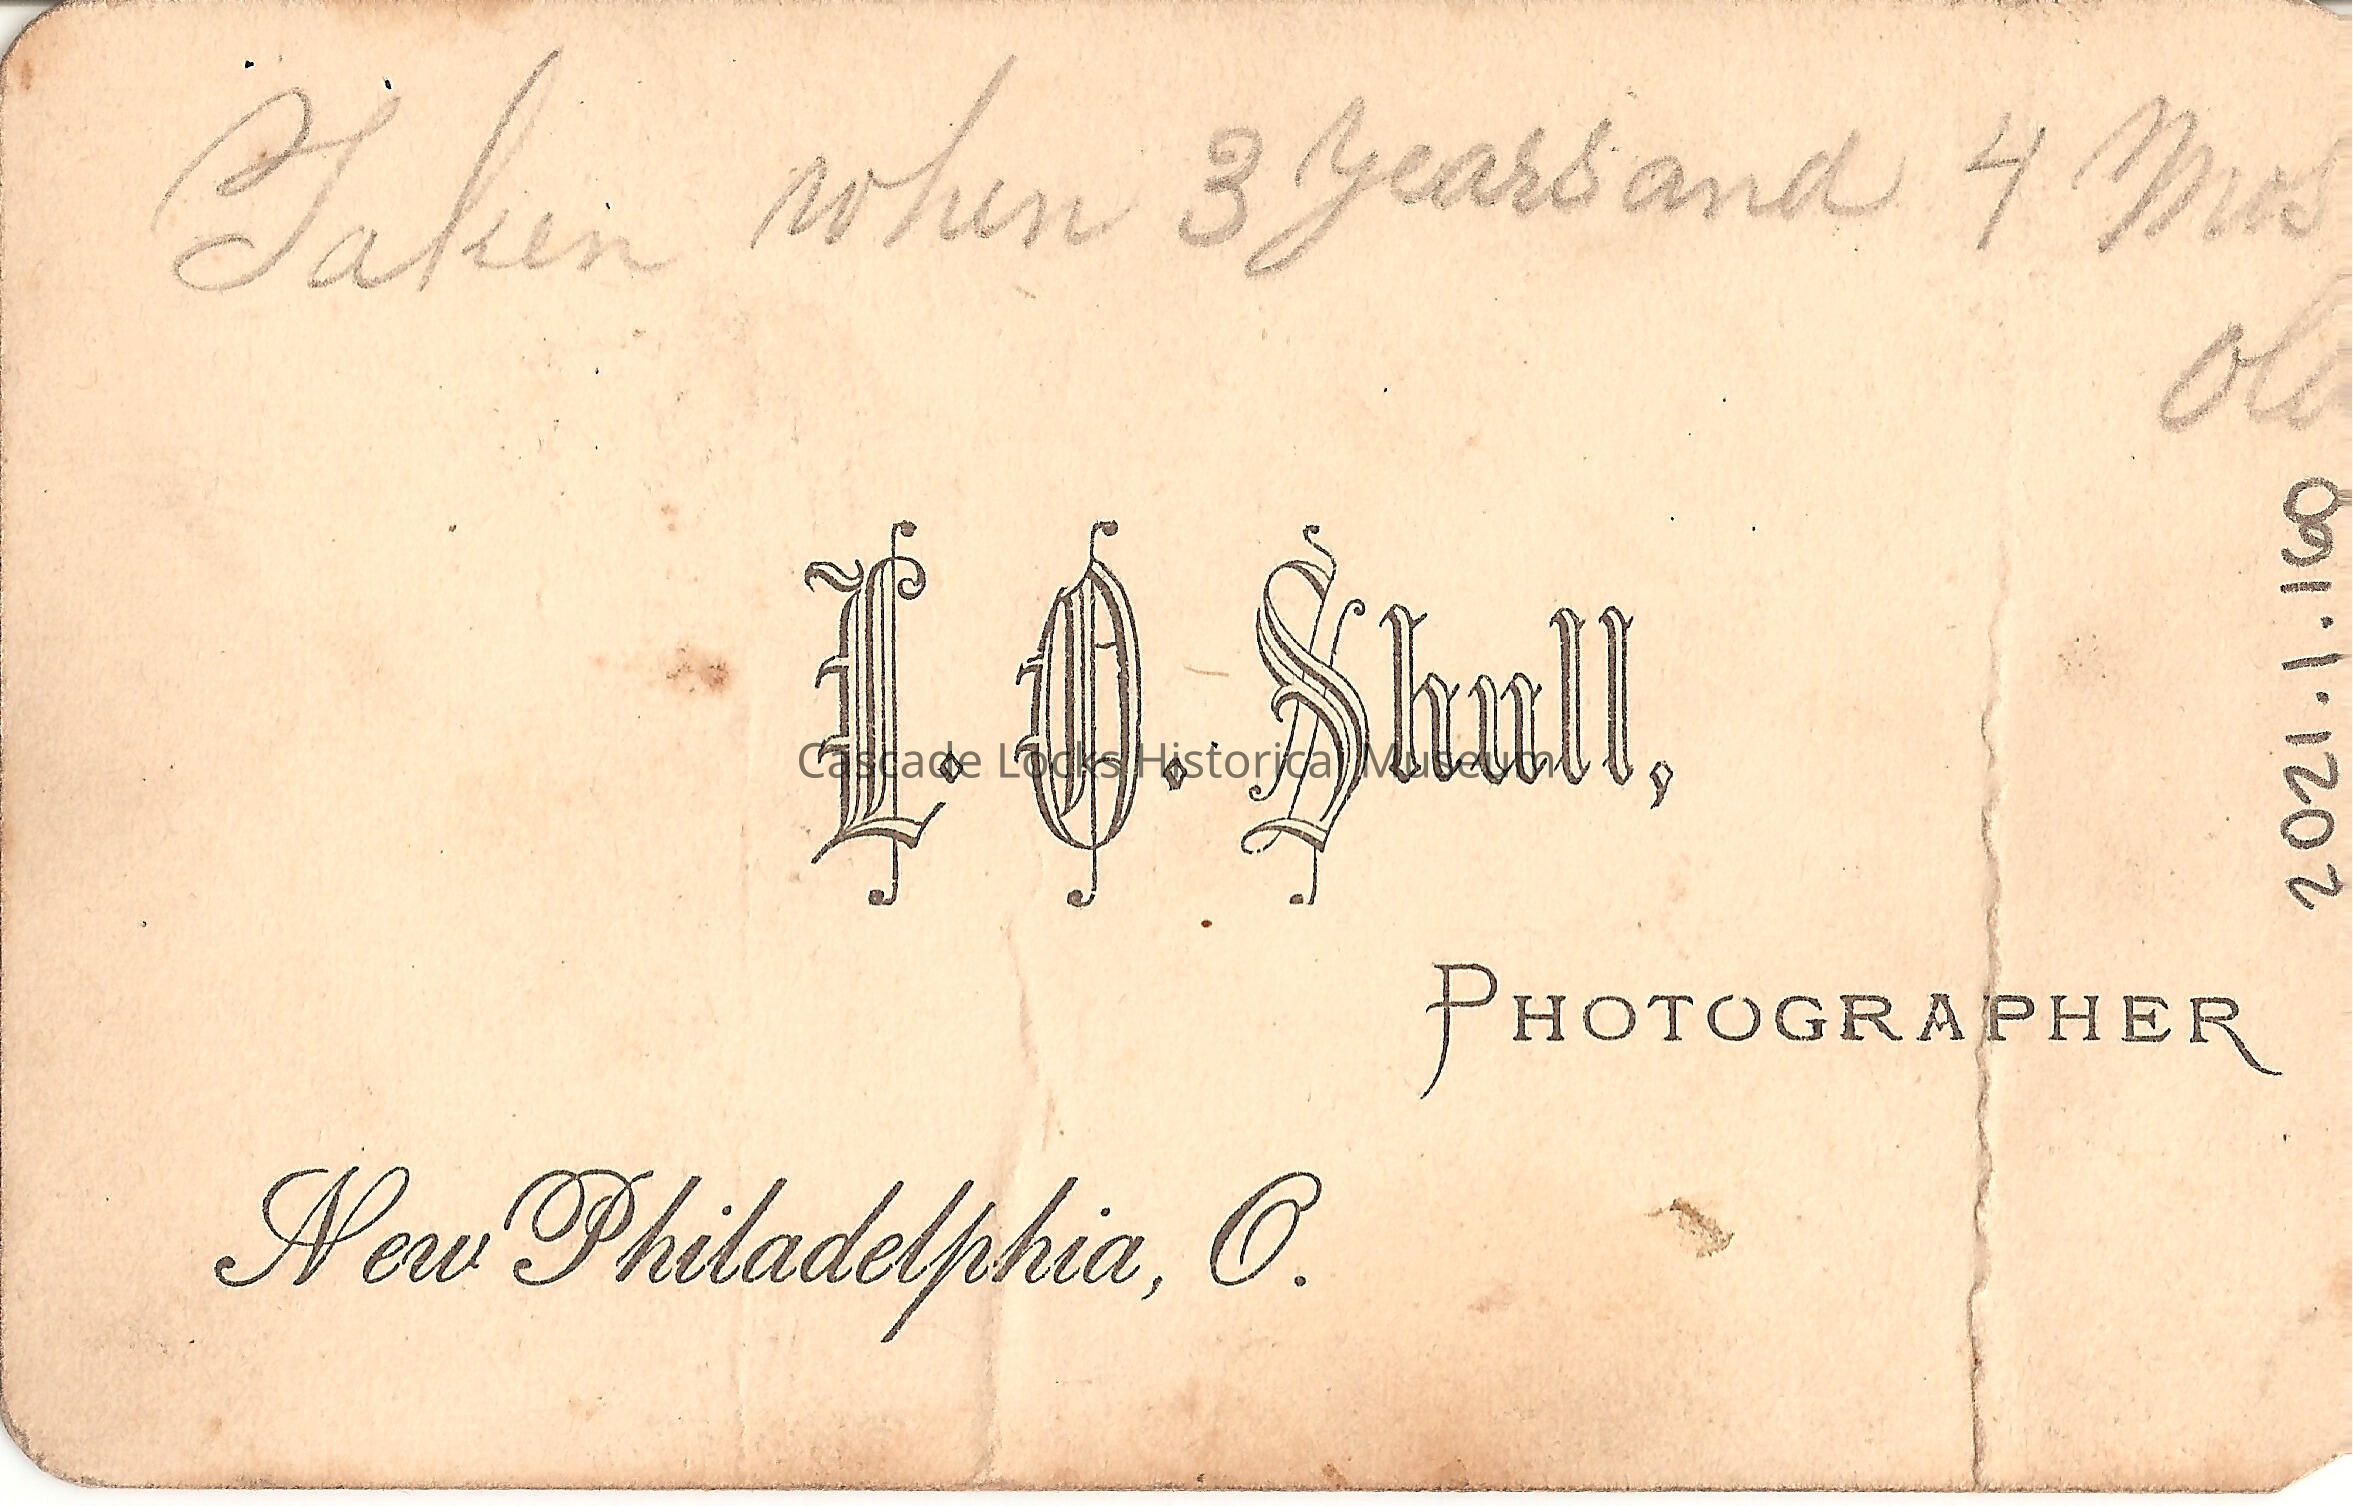 Taken when 3 years and 4 Mos
old
2021.1.118
L. O. Shull,
Cascade Locks Historical Museum
PHOTOGRAPHER
New Philadelphia, O.